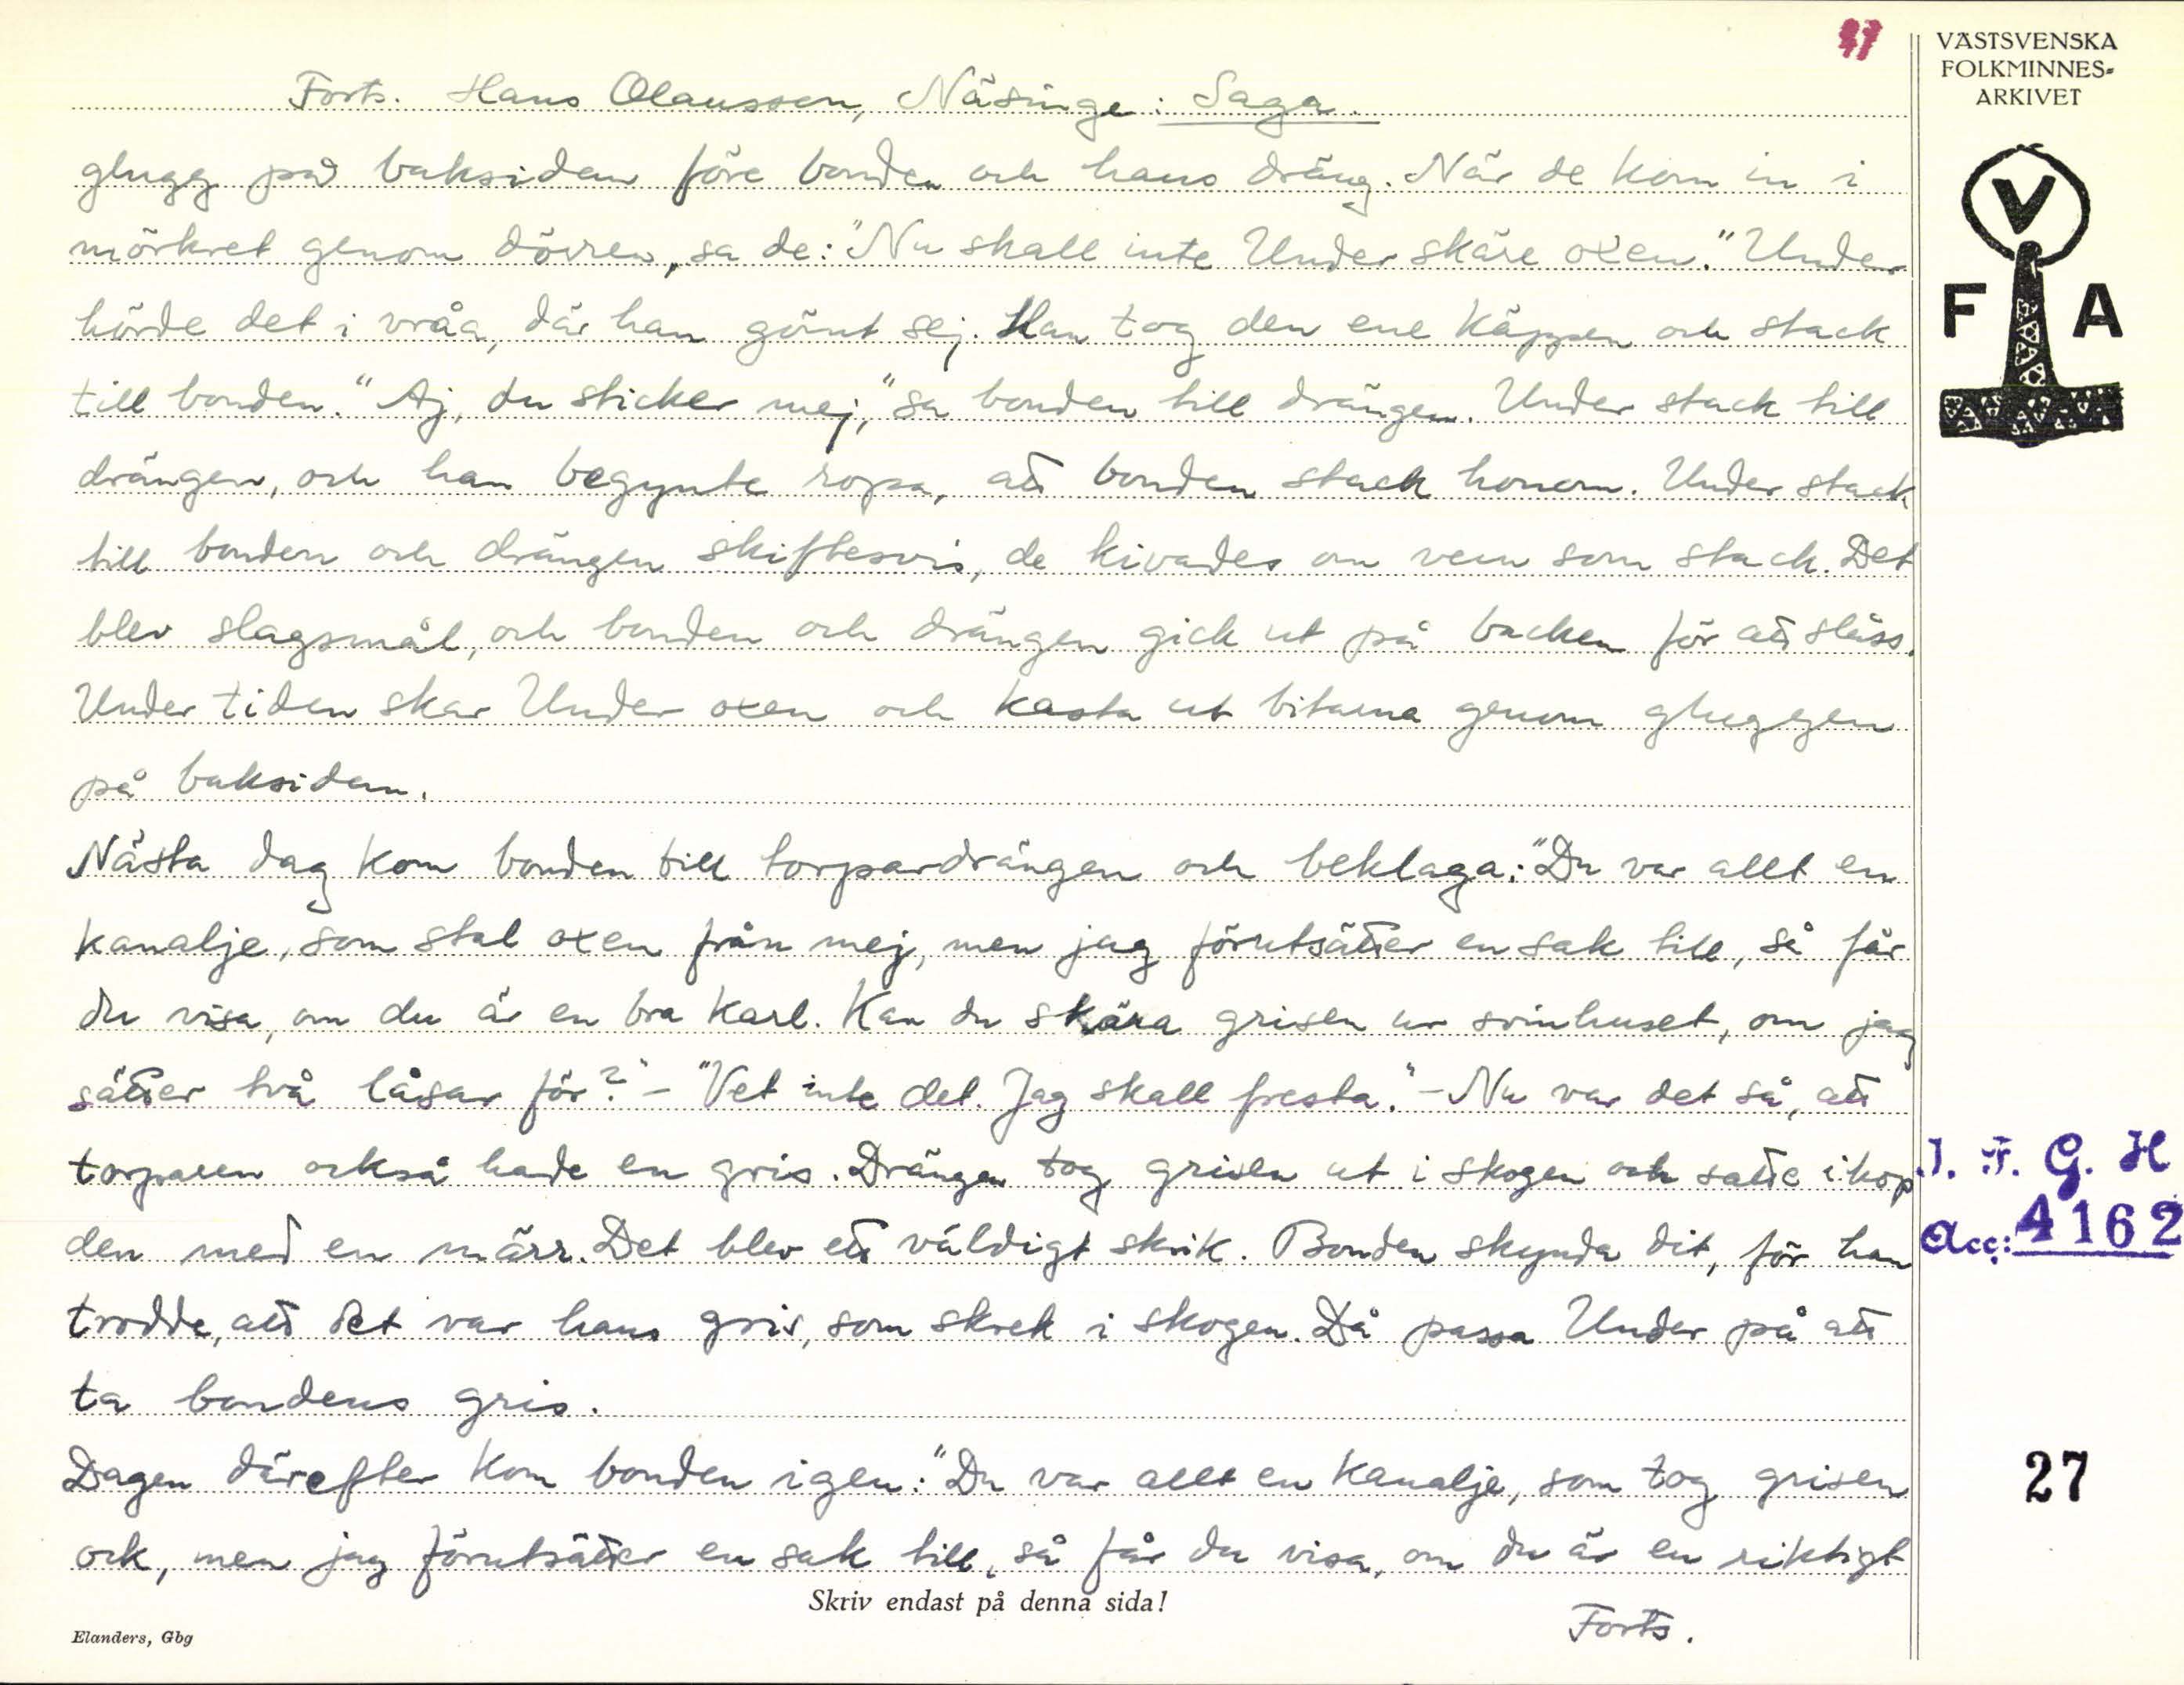 27
VÄSTSVENSKA
FOLKMINNES-
ARKIVET
V
F A
Forts. Hans Olaussen, Näsinge: Saga.
glugg på baksidan före bonden och hans dräng. När de kom in i
mörkret genom dörren, sa de: "Nu skall inte Under skäre oxen." Under
hörde det i vråa, där han gömt sej. Han tog den ene käppen och stack
till bonden. "Aj, du sticker mej," sa bonden till drängen. Under stack till
drängen, och han begynte ropa, att bonden stack honom. Under stack
till bonden och drängen skiftesvis, de kivades om vem som stack. Det
blev slagsmål, och bonden och drängen gick ut på backen för att slåss.
Under tiden skar Under oxen och kasta ut bitarna genom gluggen
på baksidan.
Nästa dag kom bonden till torpardrängen och beklaga: "Du var allt en
kanalje, som stal oxen från mej, men jag förutsätter en sak till, så får
du visa, om du är en bra karl. Kan du skära grisen ur svinhuset, om jag
sätter två låsar för?" - "Vet inte det. Jag skall fresta." - Nu var det så, att
torparen också hade en gris. Drängen tog grisen ut i skogen och satte ihop
den med en märr. Det blev ett väldigt skrik. Bonden skynda dit, för han
trodde, att det var hans gris, som skrek i skogen. Då passa Under på att
ta bondens gris.
Dagen därefter kom bonden igen: "Du var allt en kanalje, som tog grisen
ock, men jag förutsätter en sak till, så får du visa, om du är en riktigt
Forts.
Skriv endast på denna sida!
Elanders, Gbg
I. F. G. H
Acc: 4162
27